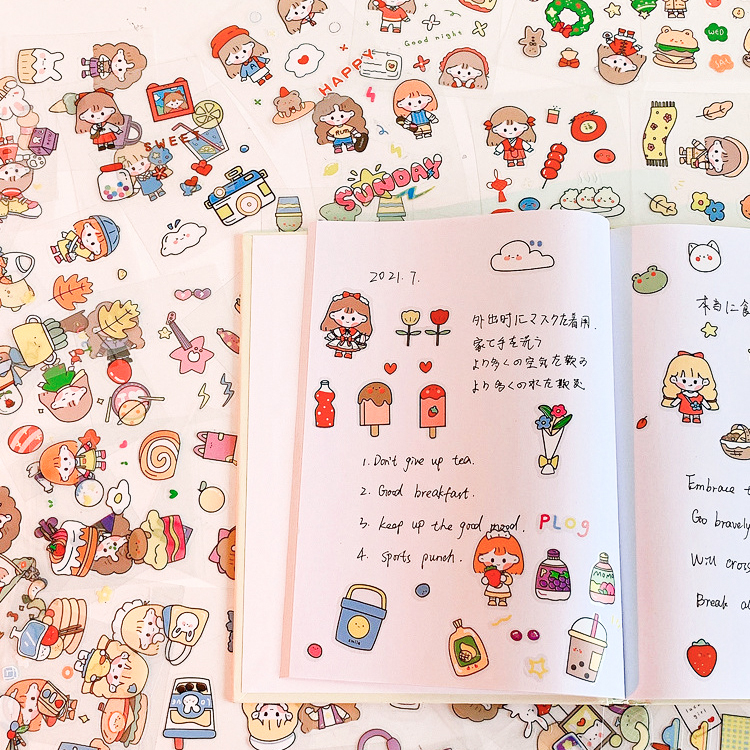 Good night
HAPPY
WED
SAT
SWEET
RUN
SUNDAY
2021.7.
外出時にマスクを着用.
家で手を洗う
より多くの空気を飲う
より多くの水を飲む
1. Don't give up tea.
2. Good breakfast.
3. keep up the good mood.
4. sports punch.
PLOG
MOMO
smile
本当に食
Embrace t
Go bravely
Will cros
Break a